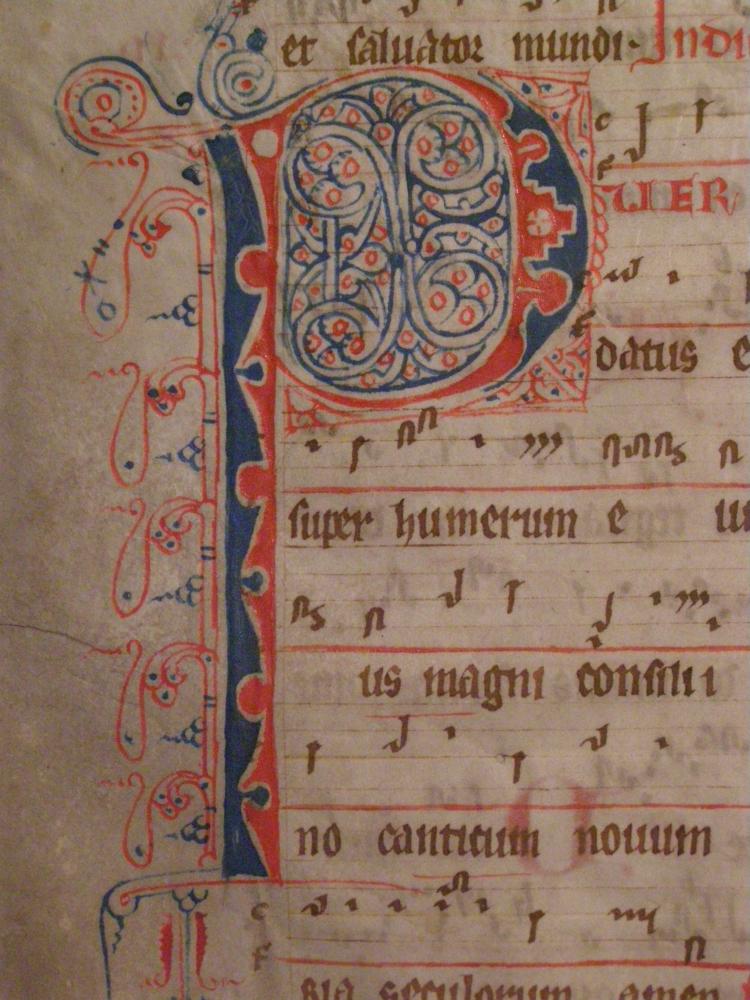 et saluator mundi. Indi
P UER
datus e
super humerum e
us magni consilii
no canticum nouum
seculorum amen